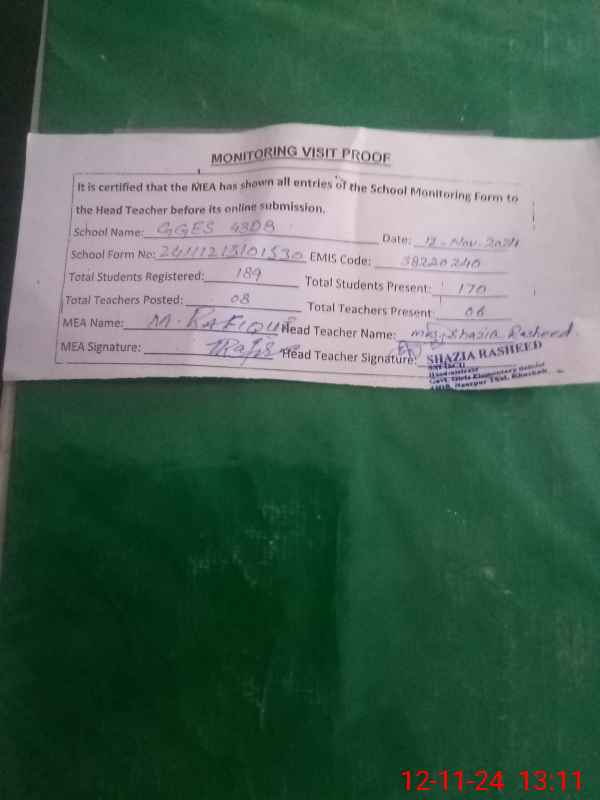 MONITORING VISIT PROOF
It is certified that the MEA has shown all entries of the School Monitoring Form to
the Head Teacher before its online submission.
School Name: GGES 43DB Date: 12-Nov-2024
School Form No: EMIS Code: 38220240
Total Students Registered: 189 Total Students Present: 170
Total Teachers Posted: 08 Total Teachers Present: 06
MEA Name: M. RAFIQUE Head Teacher Name: Mrs. Shazia Rasheed
MEA Signature: Head Teacher Signature:
SHAZIA RASHEED
Headmistress
Govt. Girls Elementary School
12-11-24 13:11